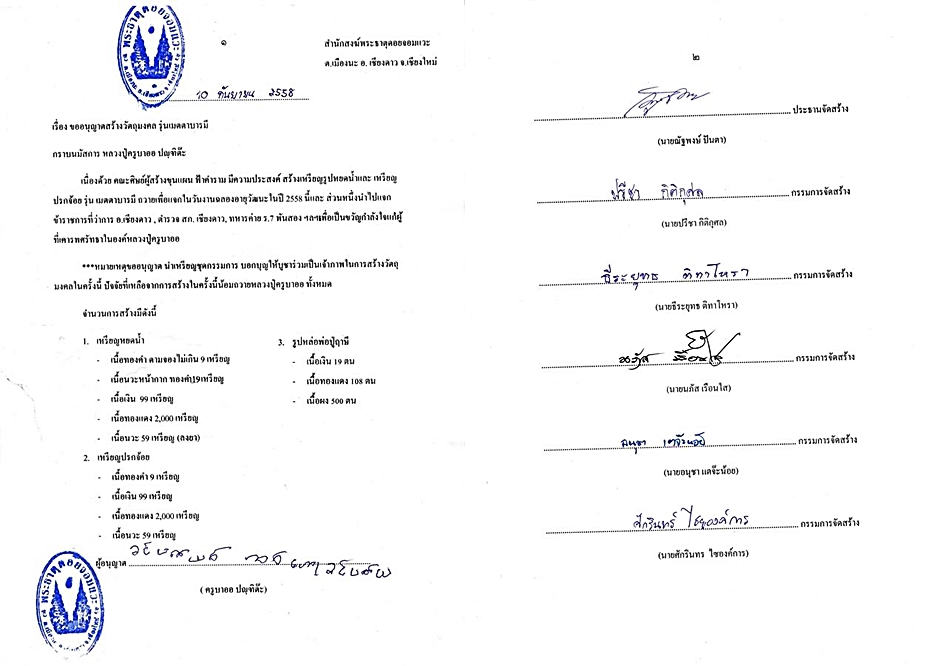 พระธาตุดอยจอมแวะ
๑
สำนักสงฆ์พระธาตุดอยจอมแวะ
ต.เมืองนะ อ. เชียงดาว จ.เชียงใหม่
10 กันยายน 2558
เรื่อง ขออนุญาตสร้างวัตถุมงคล รุ่นเมตตาบารมี
กราบนมัสการ หลวงปู่ครูบาออ ปณฺฑิต๊ะ
เนื่องด้วย คณะศิษย์ผู้สร้างขุนแผน ฟ้าคำราม มีความประสงค์ สร้างเหรียญรูปหยดน้ำและ เหรียญ
ปรกจ้อย รุ่น เมตตาบารมี ถวายเพื่อแจกในวันงานฉลองอายุวัฒนะในปี 2558 นี้และ ส่วนหนึ่งนำไปแจก
ข้าราชการที่ว่าการ อ.เชียงดาว , ตำรวจ สภ. เชียงดาว, ทหารค่าย ร.7 พันสอง ฯลฯเพื่อเป็นขวัญกำลังใจแก่ผู้
ที่เคารพศรัทธาในองค์หลวงปู่ครูบาออ
***หมายเหตุขออนุญาต นำเหรียญชุดกรรมการ บอกบุญให้บูชาร่วมเป็นเจ้าภาพในการสร้างวัตถุ
มงคลในครั้งนี้ ปัจจัยที่เหลือจากการสร้างในครั้งนี้น้อมถวายหลวงปู่ครูบาออ ทั้งหมด
จำนวนการสร้างมีดังนี้
1. เหรียญหยดน้ำ
- เนื้อทองคำ ตามจองไม่เกิน 9 เหรียญ
- เนื้อนวะหน้ากาก ทองคำ19เหรียญ
- เนื้อเงิน 99 เหรียญ
- เนื้อทองแดง 2,000 เหรียญ
- เนื้อนวะ 59 เหรียญ (ลงยา)
2. เหรียญปรกจ้อย
- เนื้อทองคำ 9 เหรียญ
- เนื้อเงิน 99 เหรียญ
- เนื้อทองแดง 2,000 เหรียญ
- เนื้อนวะ 59 เหรียญ
3. รูปหล่อพ่อปู่ฤาษี
- เนื้อเงิน 19 ตน
- เนื้อทองแดง 108 ตน
- เนื้อผง 500 ตน
ผู้อนุญาต
( ครูบาออ ปณฺฑิต๊ะ)
พระธาตุดอยจอมแวะ
๒
ประธานจัดสร้าง
(นายณัฐพงษ์ ปันตา)
ปรีชา กิติกุศล กรรมการจัดสร้าง
(นายปรีชา กิติกุศล)
ธีระยุทธ ติทาโหรา กรรมการจัดสร้าง
(นายธีระยุทธ ติทาโหรา)
กรรมการจัดสร้าง
(นายนภัส เรือนใส)
อนุชา แตจ๊ะน้อย กรรมการจัดสร้าง
(นายอนุชา แตจ๊ะน้อย)
ศักรินทร์ ไชองค์การ กรรมการจัดสร้าง
(นายศักรินทร ไชองค์การ)